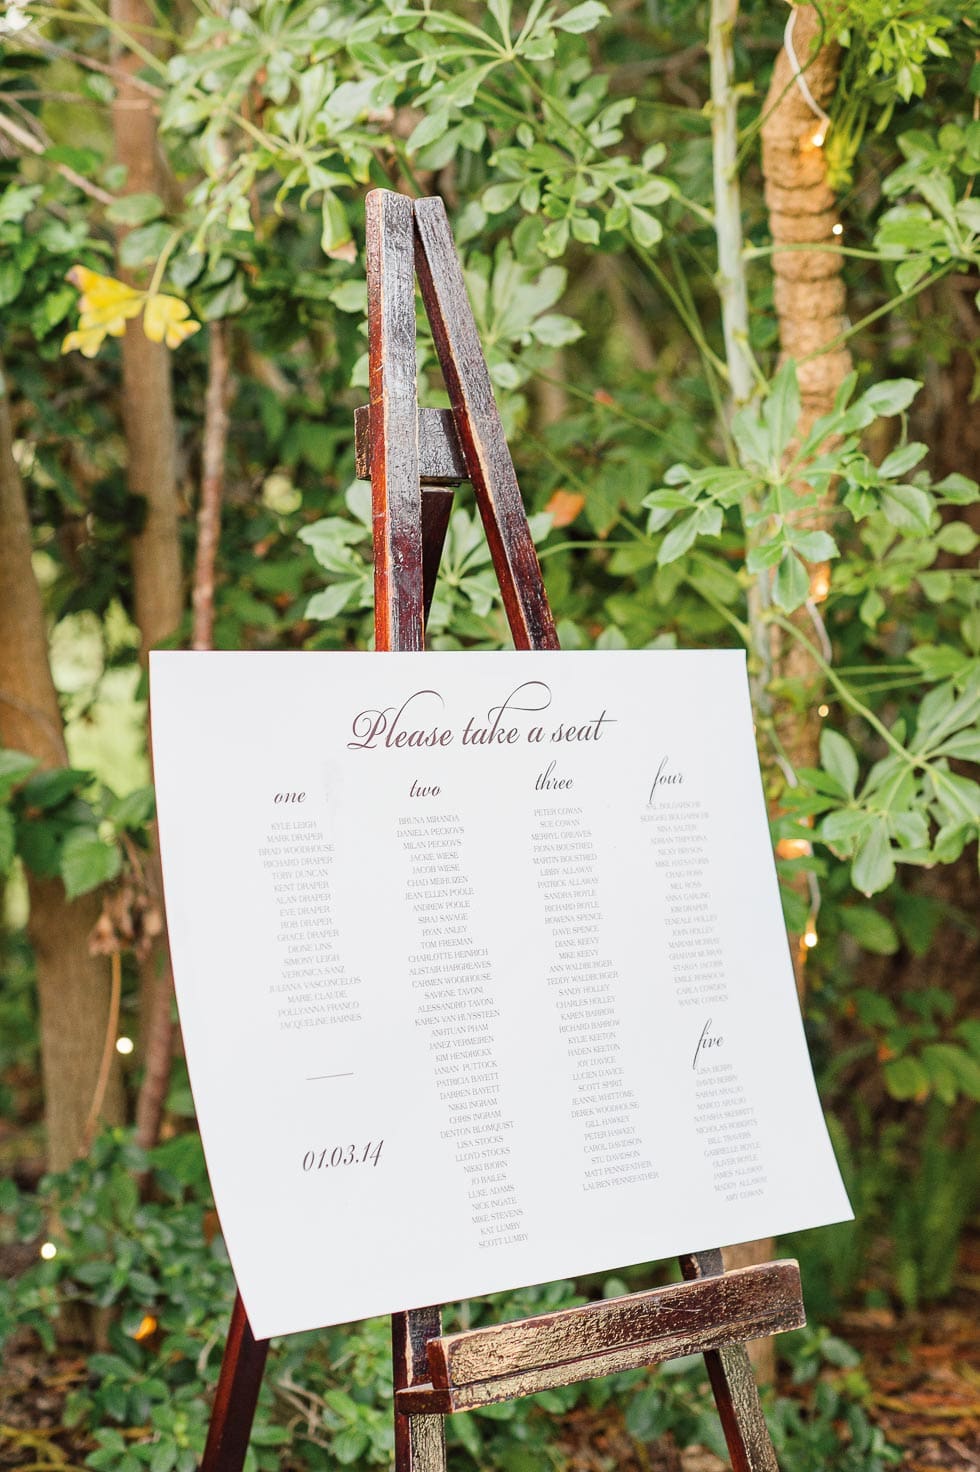 Please take a seat
one
KYLE LEIGH
MARK DRAPER
BRAD WOODHOUSE
RICHARD DRAPER
TOBY DUNCAN
KENT DRAPER
ALAN DRAPER
EVE DRAPER
ROB DRAPER
GRACE DRAPER
DIONE LINS
SIMONY LEIGH
VERONICA SANZ
JULIANA VASCONCELOS
MARIE CLAUDE
POLLYANNA FRANCO
JACQUELINE BARNES
01.03.14
two
BRUNA MIRANDA
DANIELA PECKOVS
MILAN PECKOVS
JACKIE WIESE
JACOB WIESE
CHAD MEIHUIZEN
JEAN ELLEN POOLE
ANDREW POOLE
SIRAJ SAVAGE
RYAN ANLEY
TOM FREEMAN
CHARLOTTE HEINRICH
ALISTAIR HARGREAVES
CARMEN WOODHOUSE
SAVIGNE TAVONI
ALESSANDRO TAVONI
KAREN VAN HUYSSTEEN
ANHTUAN PHAM
JANEZ VERMEIREN
KIM HENDRICKX
IANIAN PUTTOCK
PATRICIA BAYETT
DARREN BAYETT
NIKKI INGRAM
CHRIS INGRAM
DENTON BLOMQUIST
LISA STOCKS
LLOYD STOCKS
NIKKI BJORN
JO BAILES
LUKE ADAMS
NICK INGATE
MIKE STEVENS
KAT LUMBY
SCOTT LUMBY
three
PETER COWAN
SUE COWAN
MERRYL GREAVES
FIONA BOUSTRED
MARTIN BOUSTRED
LIBBY ALLAWAY
PATRICK ALLAWAY
SANDRA ROYLE
RICHARD ROYLE
ROWENA SPENCE
DAVE SPENCE
DIANE KEEVY
MIKE KEEVY
ANN WALDBURGER
TEDDY WALDBURGER
SANDY HOLLEY
CHARLES HOLLEY
KAREN BARROW
RICHARD BARROW
KYLIE KEETON
HADEN KEETON
JOY DAVICE
LUCIEN DAVICE
SCOTT SPIRIT
JEANNE WHITTOME
DEREK WOODHOUSE
GILL HAWKEY
PETER HAWKEY
CAROL DAVIDSON
STU DAVIDSON
MATT PENNEFATHER
LAUREN PENNEFATHER
four
SAL BOLGARSCHI
SERGHO BOLGARSCHI
NINA SALTER
ADRIAN
NICKY BRYSON
MIKE
CRAIG ROSS
MEL ROSS
ANNA GARLING
KIM DRAPER
TENEALE HOLLEY
JOHN HOLLEY
MARIAM MURRAY
GRAHAM MURRAY
JACOBS
EMILE ROSSOUW
CARLA COWDEN
WAYNE COWDEN
five
LISA BERRY
DAVID BERRY
SARAH ARAUJO
MARCO ARAUJO
NATASHA SKERRITT
NICHOLAS ROBERTS
BILL TRAVERS
GABRIELLE ROYLE
OLIVER ROYLE
JAMES ALLAWAY
MADDY ALLAWAY
AMY COWAN